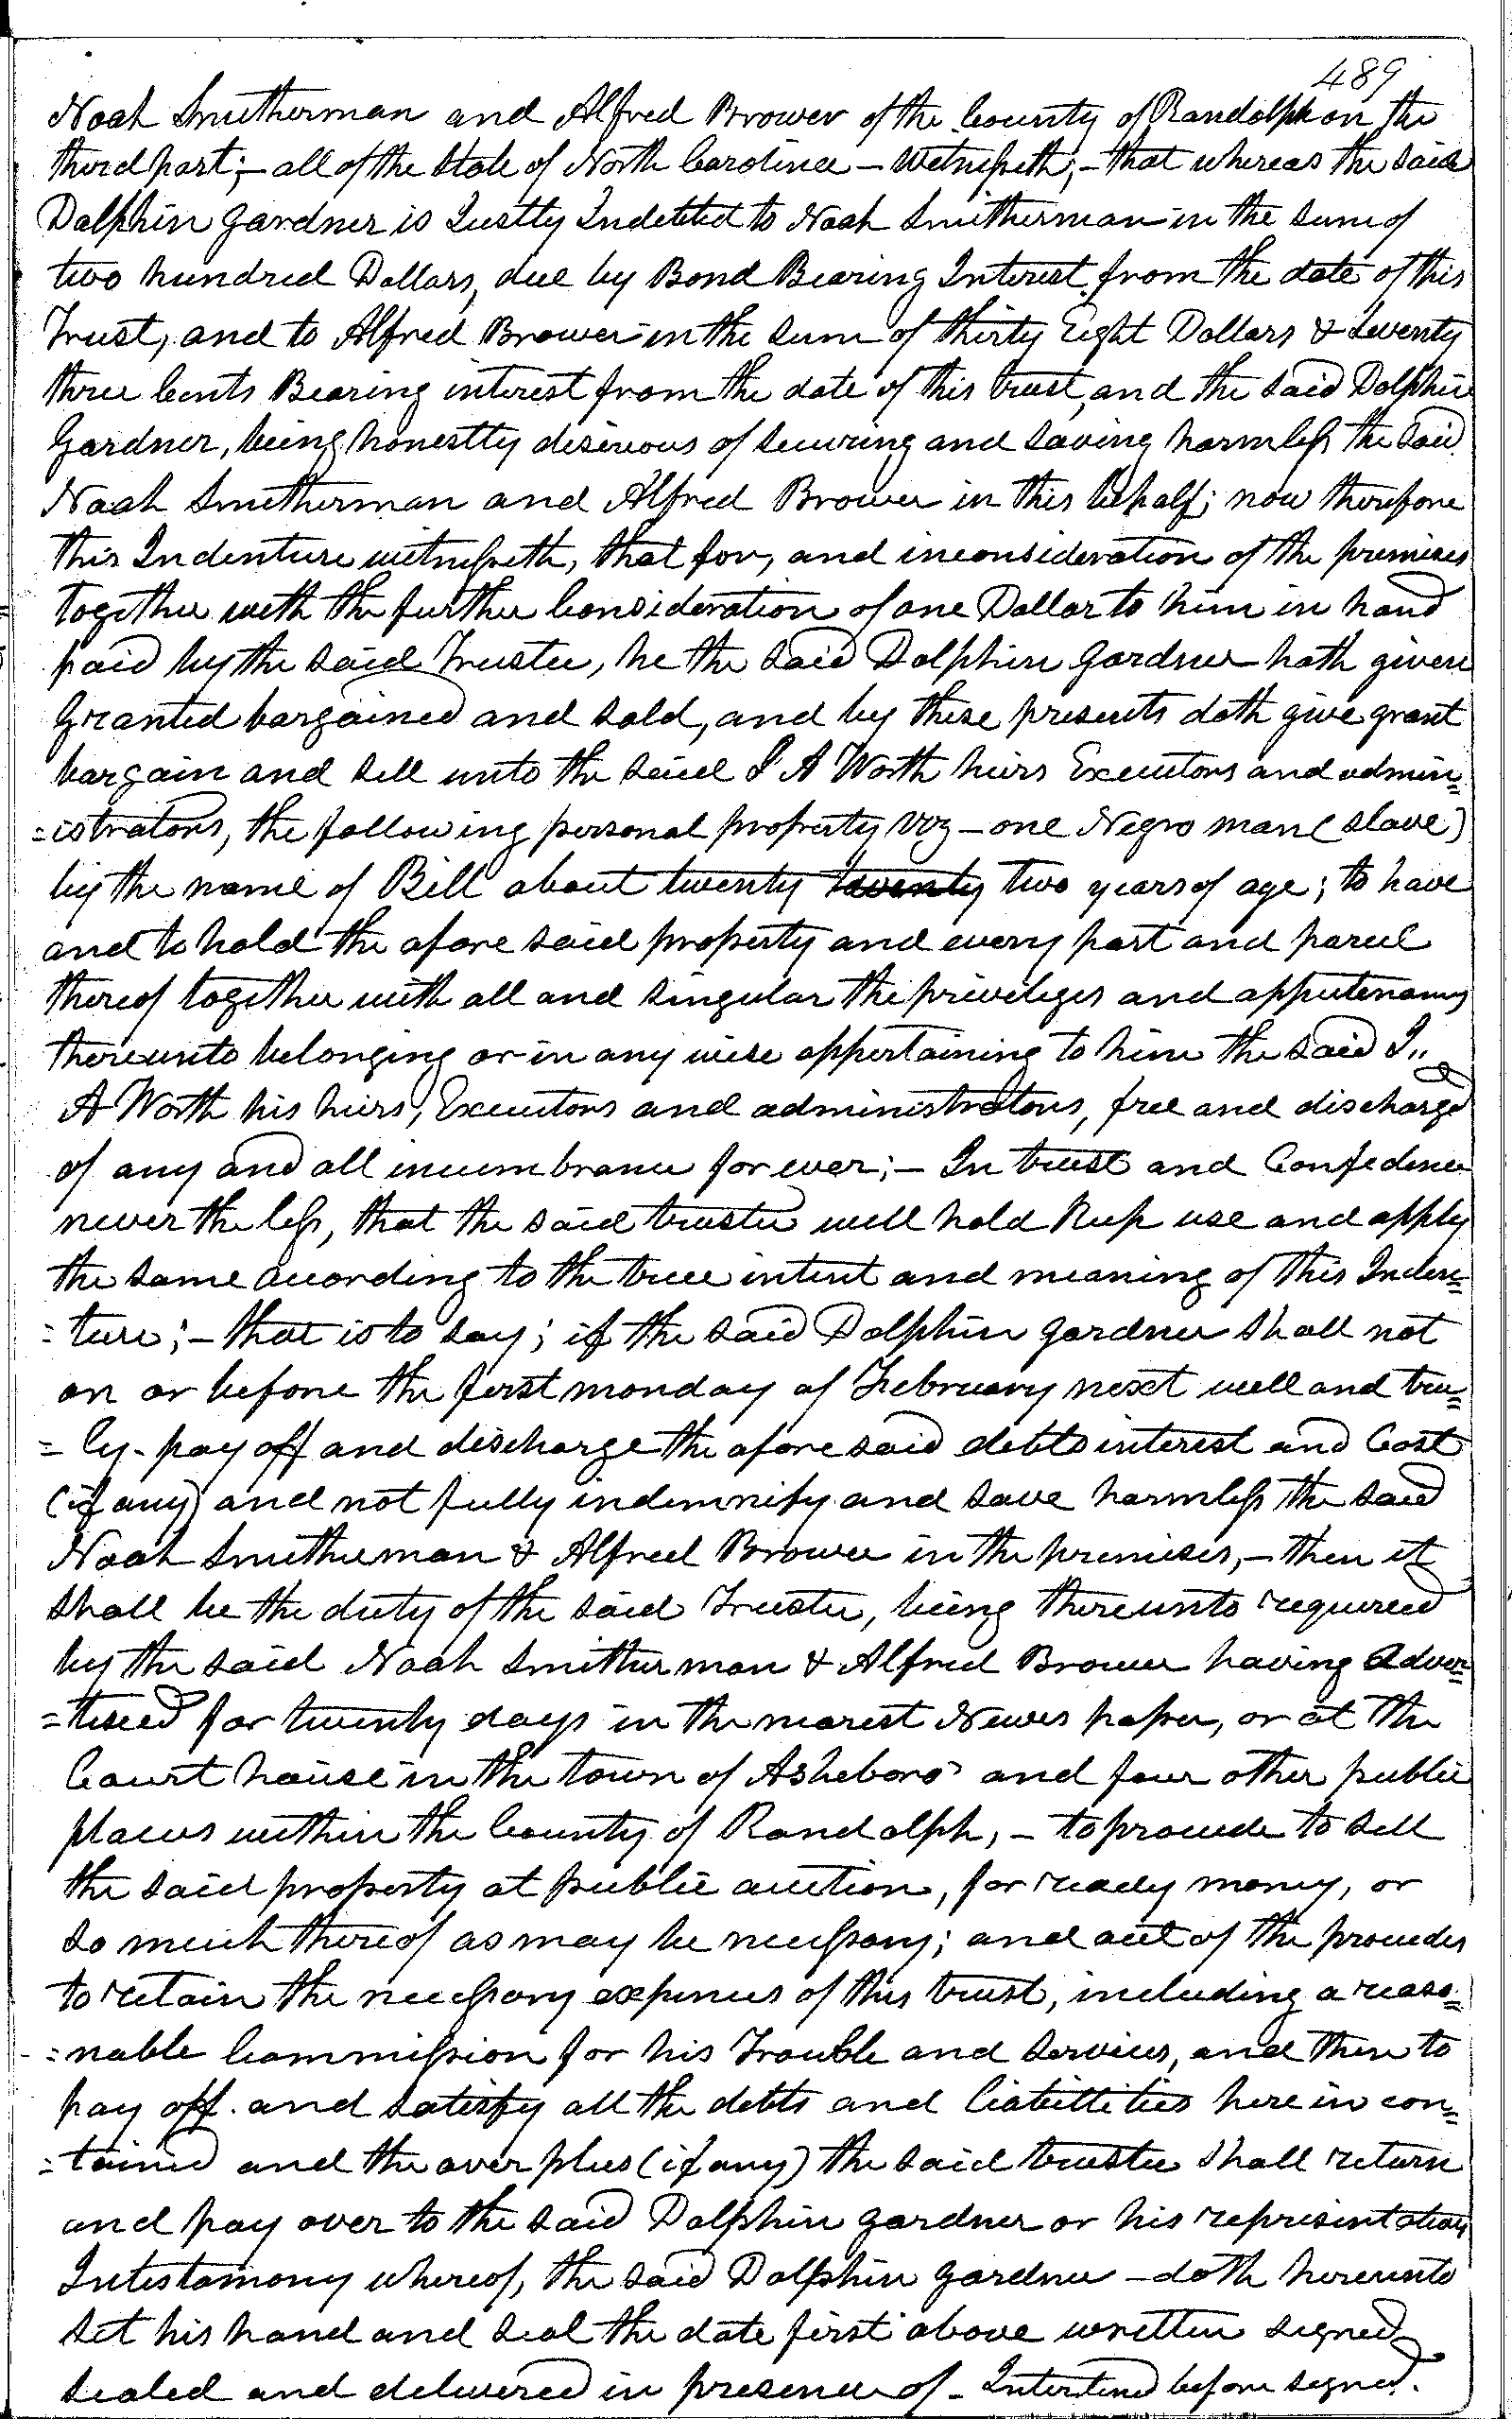 489
Noah Smitherman and Alfred Brower of the County of Randolph on the
third part;- all of the State of North Carolina - Witnesseth;- that whereas the said
Dolphin Gardner is Justly Indebted to Noah Smitherman in the sum of
two hundred Dollars, due by Bond Bearing Interest from the date of this
Trust, and to Alfred Brower in the sum of thirty Eight Dollars & seventy
three Cents Bearing interest from the date of this trust, and the said Dolphin
Gardner, being honestly desireous of securing and saving harmless the said
Noah Smitherman and Alfred Brower in this behalf; now therefore
this Indenture witnesseth, that for, and inconsideration of the premises
together with the further Consideration of one Dollar to him in hand
paid by the said Trustee, he the said Dolphin Gardner hath given
Granted bargained and sold, and by these presents doth give grant
bargain and sell unto the said J A Worth heirs Executors and admin=
=istrators, the following personal property viz - one Negro man (slave)
by the name of Bill about twenty seventy two years of age; to have
and to hold the afore said property and every part and parcel
thereof together with all and singular the priveleges and appertenancs
thereunto belonging or in any wise appertaining to him the said J..
A Worth his heirs, Executors and administrators, free and discharged
of any and all incumbrance for ever;- In trust and Confidence
never the less, that the said trustee will hold Keep use and apply
the same according to the true intent and meaning of this Inden=
=ture;- that is to say; if the said Dolphin Gardner shall not
on or before the first monday of February next well and tru=
=ly- pay off and discharge the afore said debts interest and Cost
(if any) and not fully indemnify and save harmless the said
Noah Smitherman & Alfred Brower in the premises,- then it
shall be the duty of the said Trustee, being thereunto required
by the said Noah Smitherman & Alfred Brower having Adver=
=tised for twenty days in the nearest News paper, or at the
Court house in the town of Asheboro and four other public
places within the County of Randolph,- to procede to sell
the said property at public auction, for ready money, or
so much thereof as may be necessary; and out of the procedes
to retain the necessary expenses of this trust, including a reaso=
=nable Commission for his Trouble and services, and then to
pay off. and satisfy all the debts and liabilities here in con=
=tained and the over plus (if any) the said trustee shall return
and pay over to the said Dolphin Gardner or his representatives
Intestamony whereof, the said Dolphin Gardner - doth hereunto
set his hand and seal the date first above written signed
sealed and delivered in presence of - Interlined before signed.